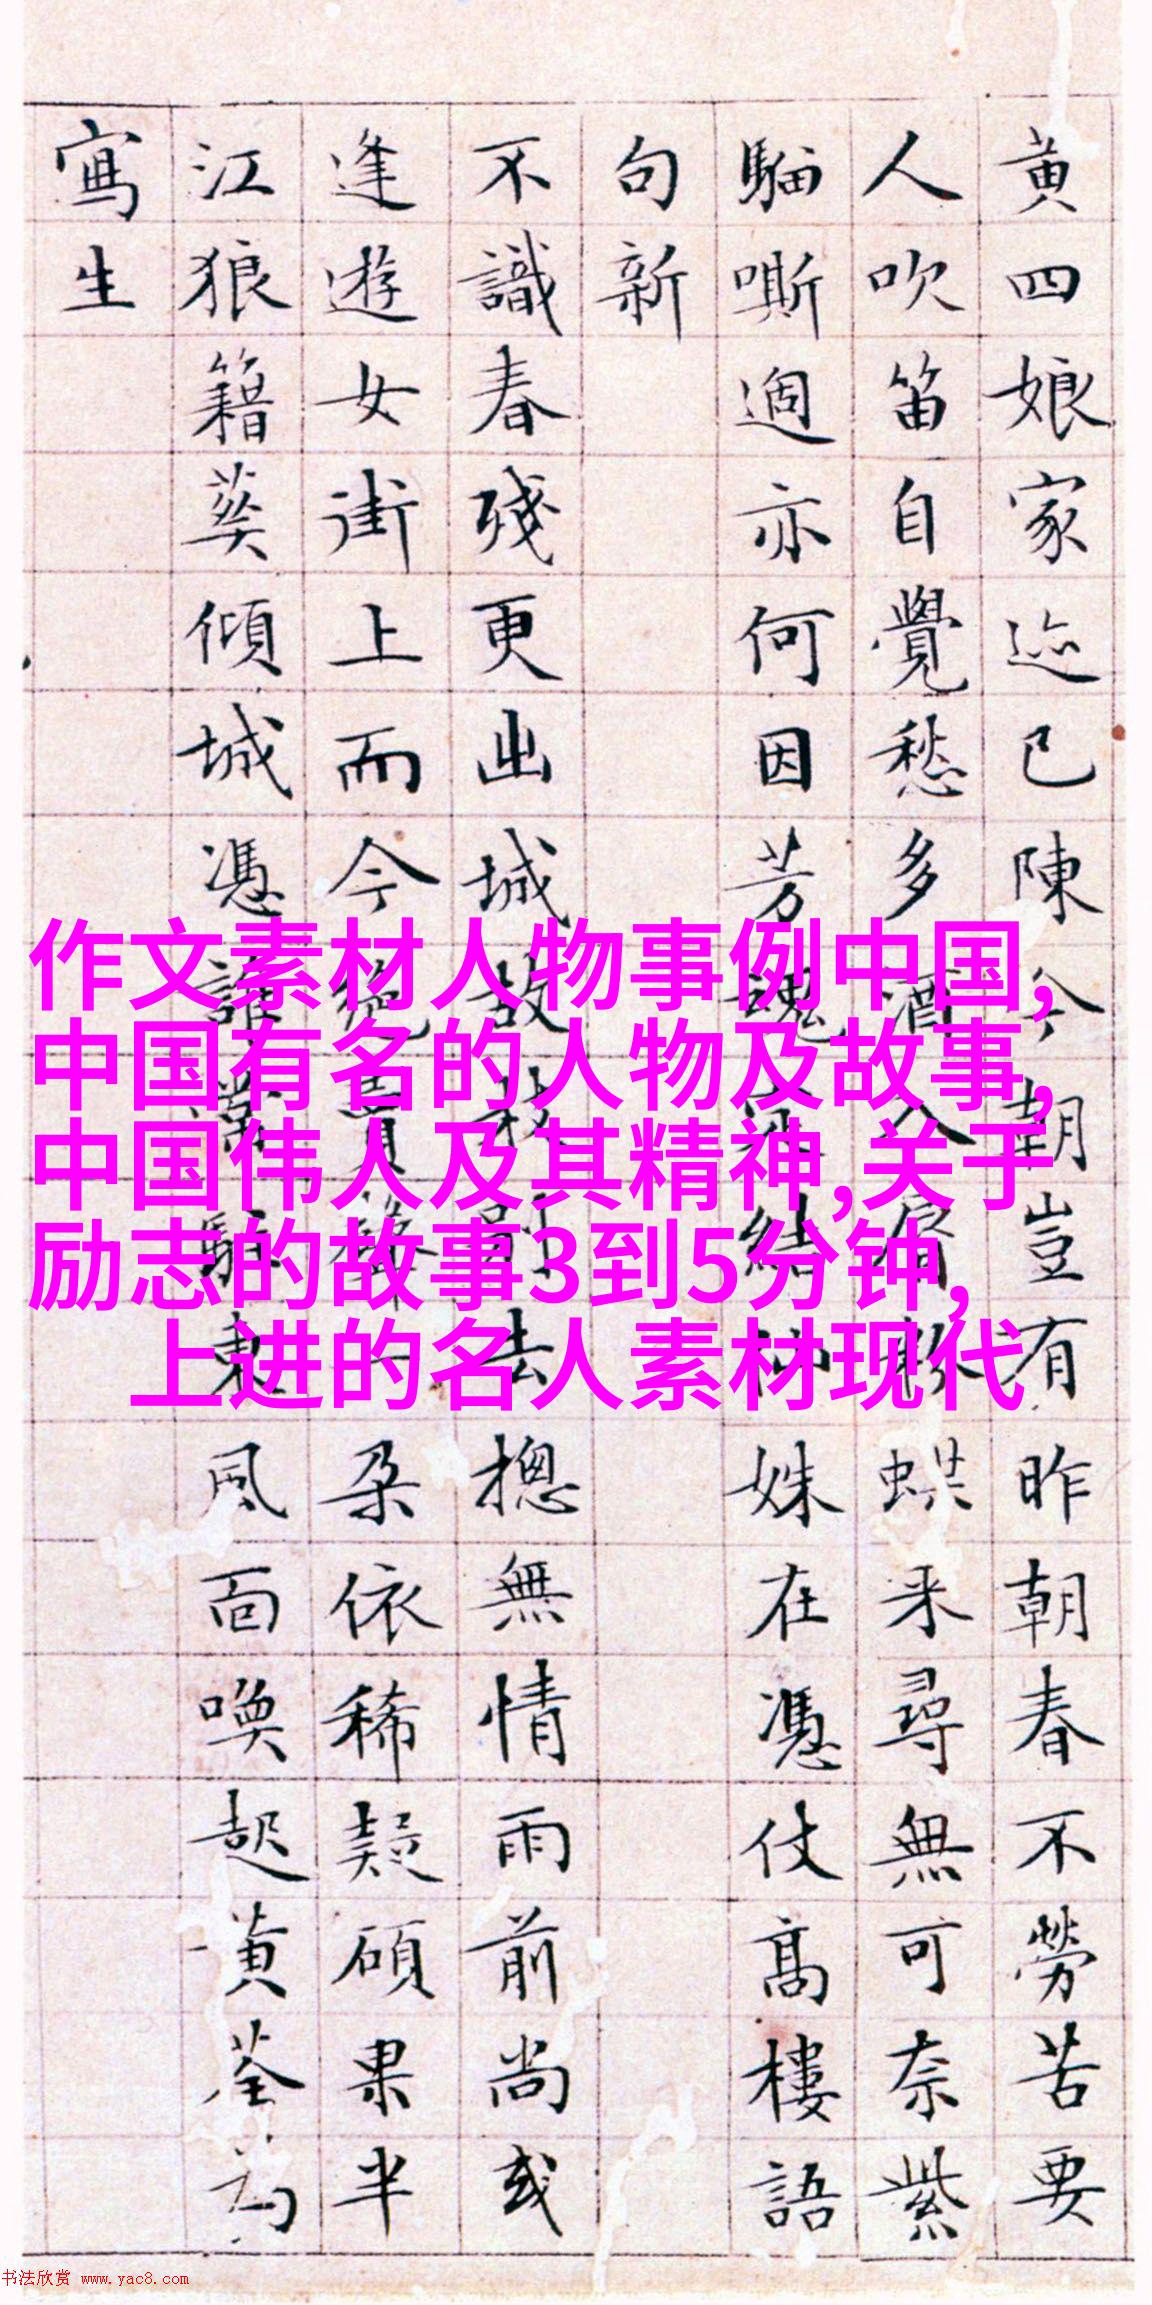 黄四娘家迹已陳今朝豈有昨朝春不勞苦要
人吹笛自覺愁多酒入来尋無可奈紫
騮嘶過亦何因芳魂結姝在憑仗高樓語
句新
不識春殘更出城故枝別去摠無情雨前尚或
逢遊女街上而今絶賣朵依稀疑碩果半
江狼籍葵傾城憑誰駐東風面喚起黄荃為
寫生
作文素材人物事例中国,
中国有名的人物及故事,
中国伟人及其精神,关于
励志的故事3到5分钟,
上进的名人素材现代
书法欣赏 www.yac8.com